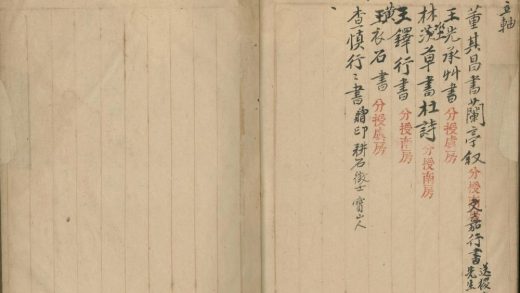 立軸
董其昌書蘭亭叙 分授
文嘉行書 送 先生
王光承艸書 分授虞房
林 草書杜詩 分授南房
王鐸行書 分授 房
衣石書 分授虞房
查慎行〻書 印 耕石徵士 寶山人